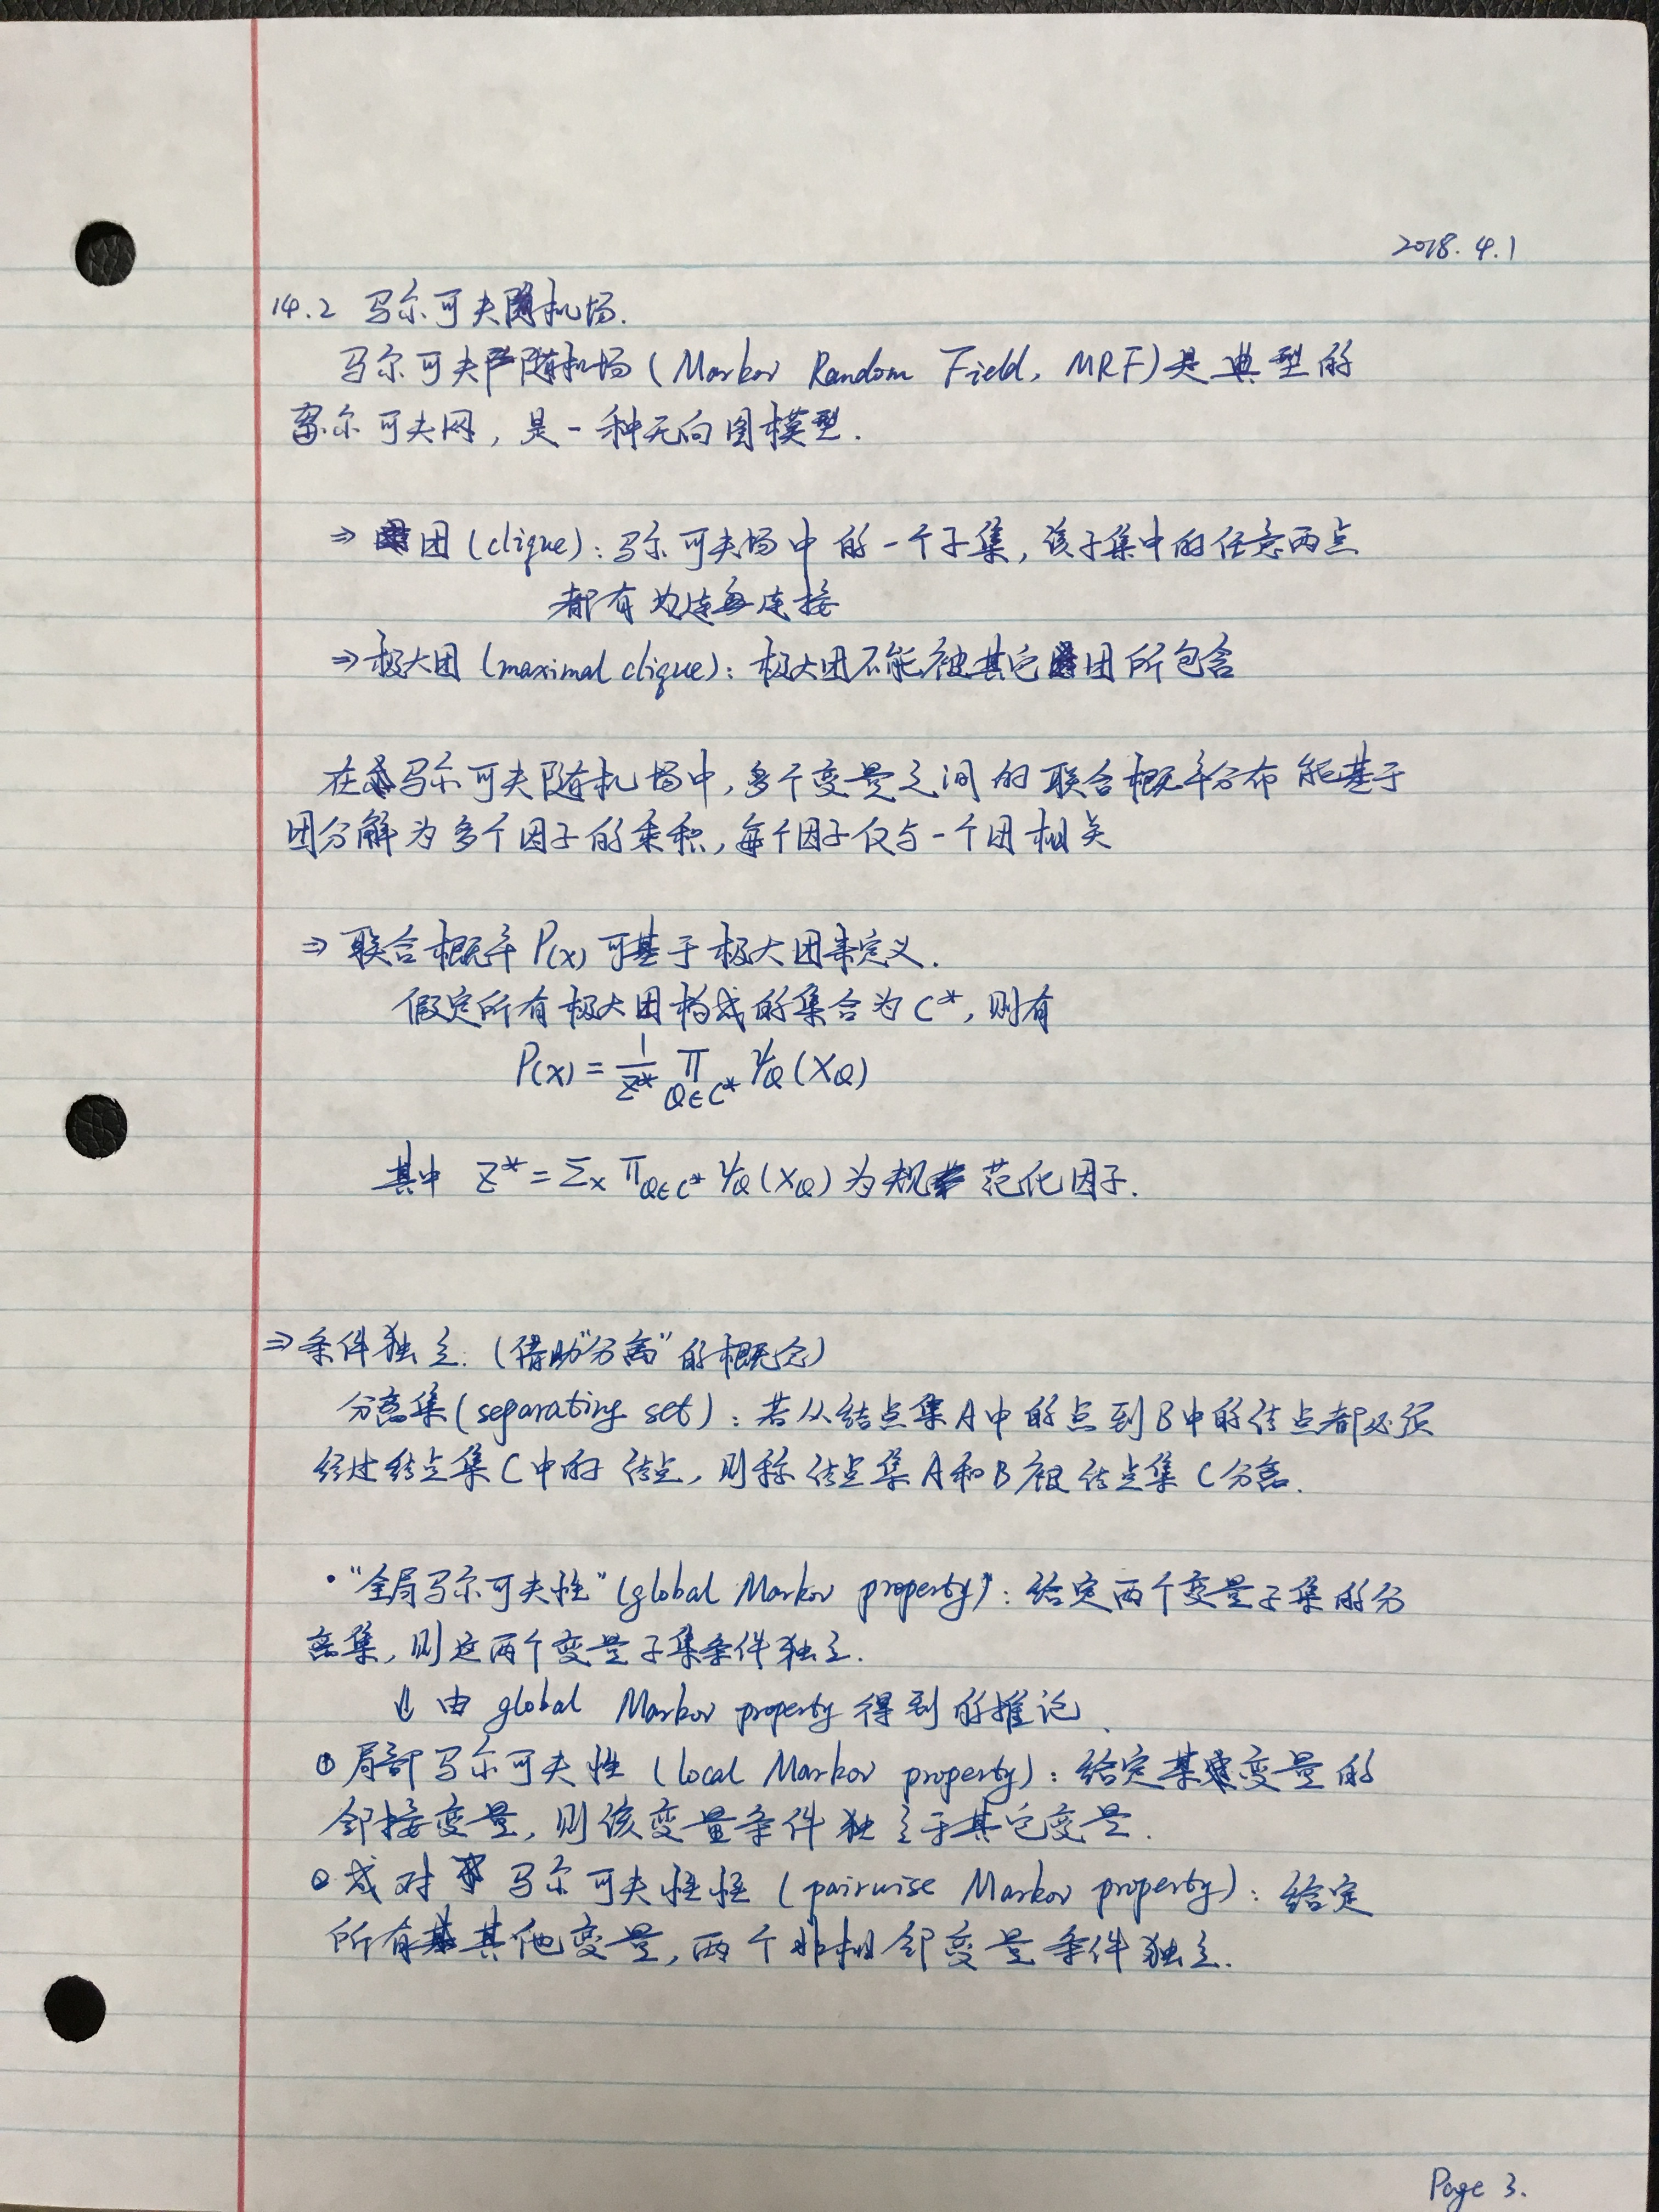 2018.4.1
14.2 马尔可夫随机场.
马尔可夫随机场(Markov Random Field, MRF)是典型的
马尔可夫网，是一种无向图模型.
⇒ 团(clique)：马尔可夫场中的一个子集，该子集中的任意两点
都有边连接
⇒极大团(maximal clique)：极大团不能被其它团所包含
在马尔可夫随机场中，多个变量之间的联合概率分布能基于
团分解为多个因子的乘积，每个因子仅与一个团相关
⇒ 联合概率P(x)可基于极大团来定义.
假定所有极大团构成的集合为C*，则有
P(x) = 1/Z* ∏_{Q∈C*} ψ_Q(X_Q)
其中 Z* = Σ_x ∏_{Q∈C*} ψ_Q(X_Q)为规范化因子.
⇒条件独立.(借助"分离"的概念)
分离集(separating set)：若从结点集A中的点到B中的结点都必须
经过结点集C中的结点，则称结点集A和B被结点集C分离.
·"全局马尔可夫性"(global Markov property)：给定两个变量子集的分
离集，则这两个变量子集条件独立.
⇓ 由 global Markov property 得到的推论、
① 局部马尔可夫性 (local Markov property)：给定某变量的
邻接变量，则该变量条件独立于其它变量.
② 成对马尔可夫性性 (pairwise Markov property)：给定
所有其他变量，两个非相邻变量条件独立.
Page 3.